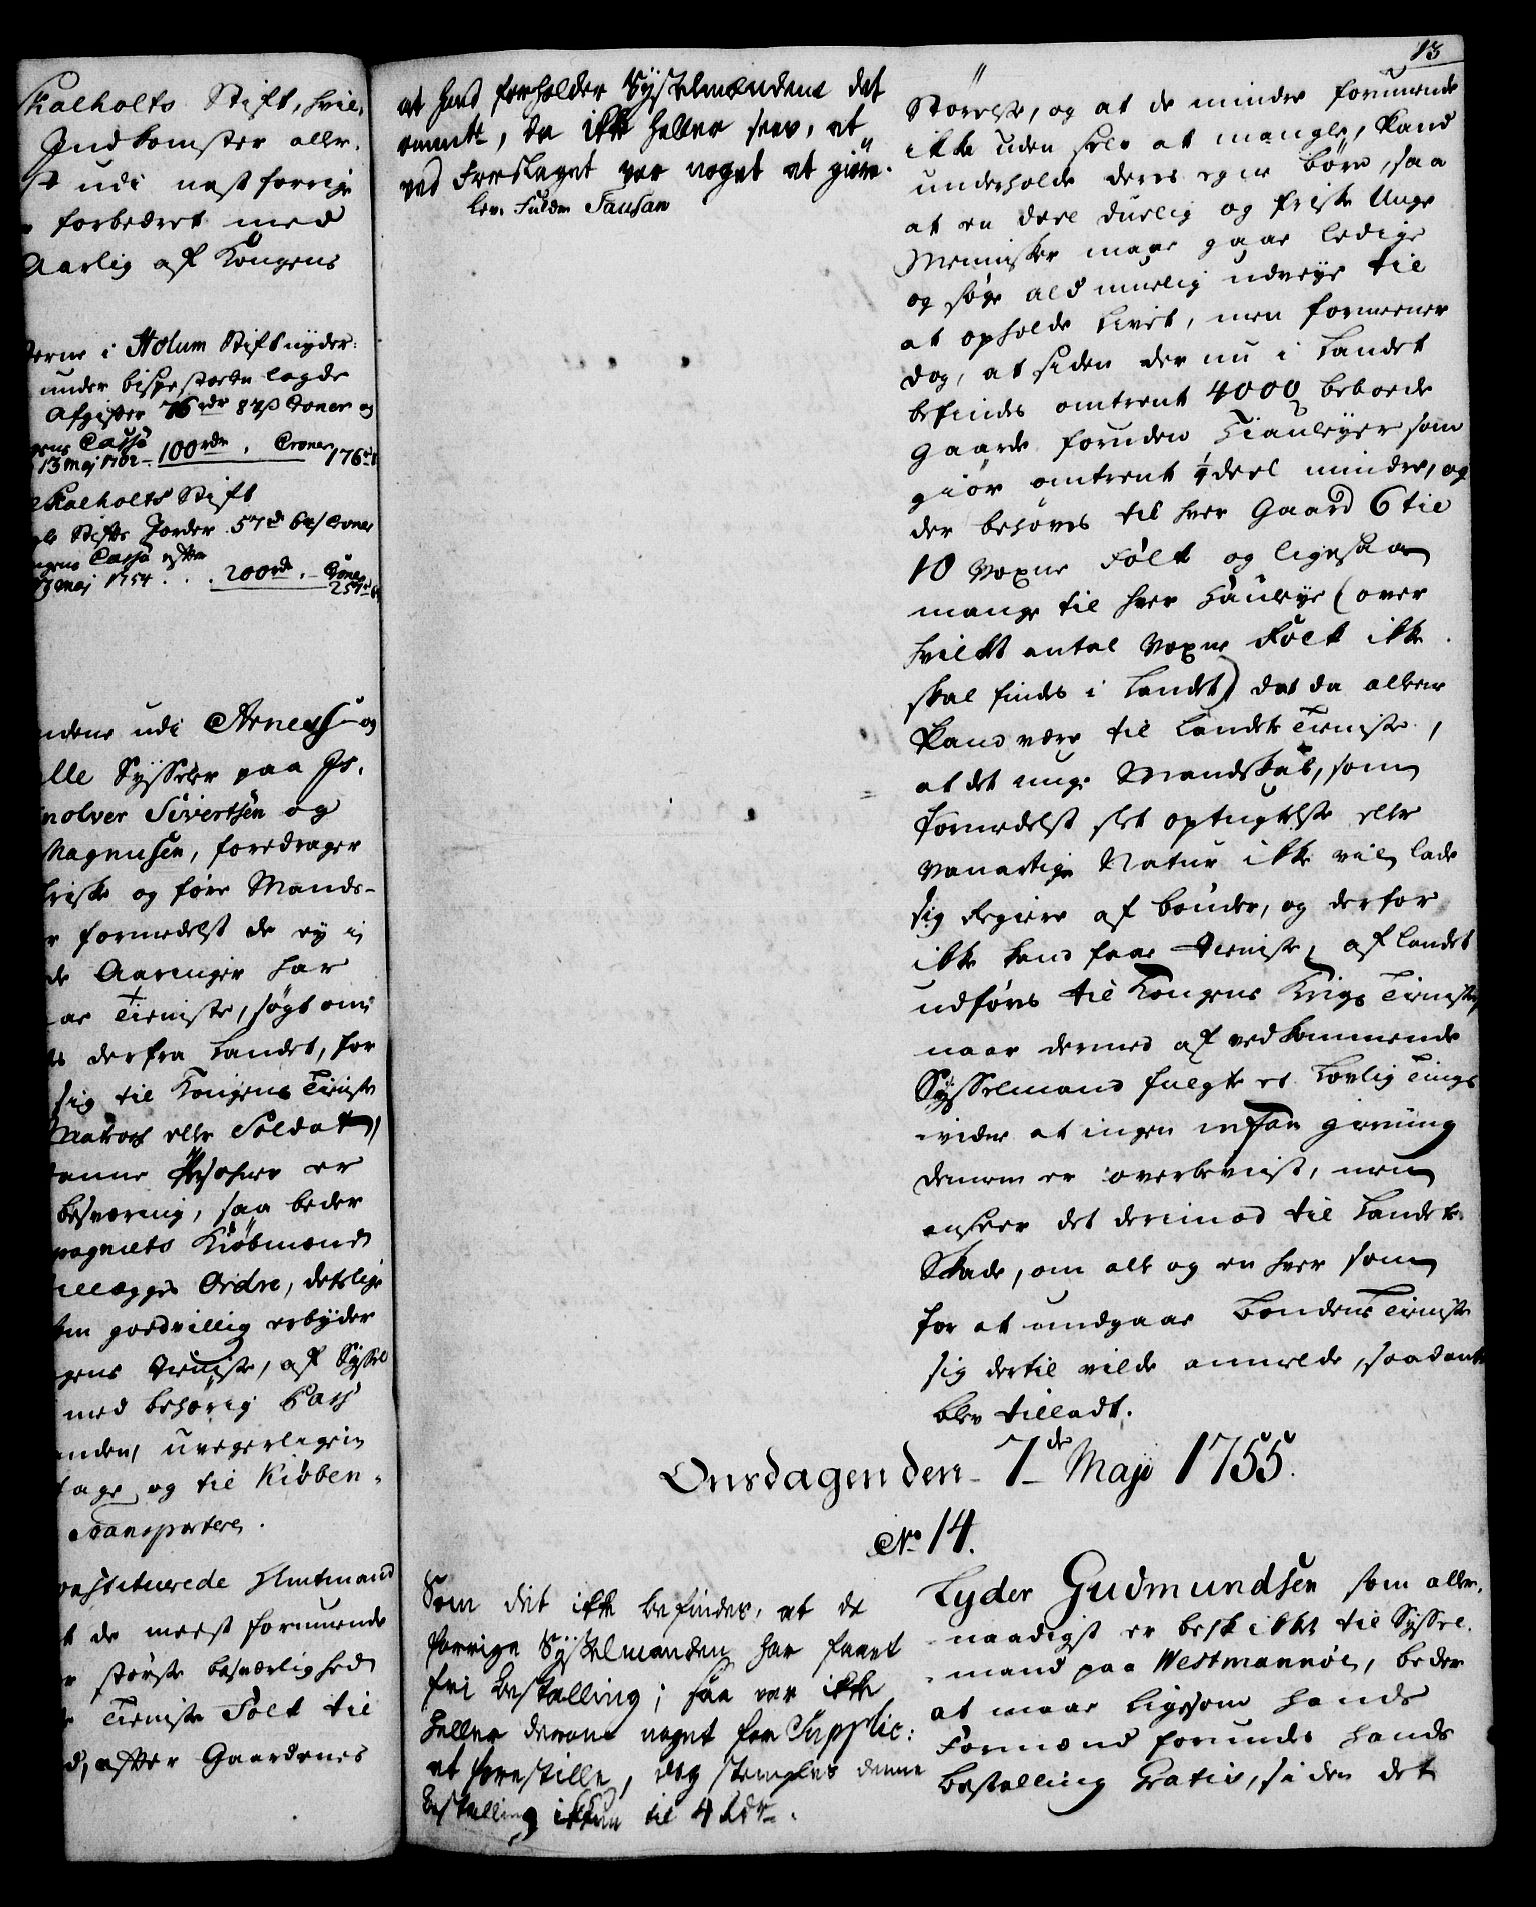 Skalholts Stift, hvil,
Indkomster aller,
udi nest forrige
forbedret med
Aarlig af Kongens
i Holum Stift nyder:
under bispestoelen lagde
Afgifter 76 rdr 82 s Croner og
gens Cassa
13 Maj 1702 - 100 rdr . Croner 176
Skalholts Stift
Stifts Jorder 57 Croner
gens Cassa efter
Maj 1754 . . . 200 rdr . - Croner
257
udi Arness og
Sysseler paa Is,
Sivertsen og
Magnusen, foredrager
friske og føre Mands-
formedelst de ey i
Aaringer har
Tieniste, søgt om
derfra Landet, for
sig til Kongens Tieniste
Matros eller Soldat,
Persohner er
besværing, saa beder
Compagniets Kiøbmænd
tillægges Ordre, at
goedvillig erbyder
Tieniste, af Syssel
med behørig Pass
uvegerligen
tage og til Kiøben-
Transportere.
Constituerede Amtmand
de meest formuende
største besværlighed
Tieniste Folk til
efter Gaardenes
13
at hand forholder Sysselmændene det
samme, da ikke heller sees, at
ved Forslaget var noget at giøre.
Lev: Fulde Sausan
Størelse, og at de mindre formuende
ikke uden selv at mangle, kand
underholde deres egne børn, saa
at en deel duelig og friske Unge
Mennisker maae gaae ledige
og søge ald muelig udveye til
at opholde Livet, men formeener
dog, at siden der nu i Landet
befindes omtrent 4000 beboede
Gaarde foruden Hiauleyer som
giør omtrent 1/4 deel mindre, og
der behøves til hver Gaard 6 til
10 Voxne Folk og ligesaa
mange til hver Hiauleye (over
hvilket antal Voxne Folk ikke
skal findes i Landet) det da allene
kand være til Landets Tieniste,
at det unge Mandskab, som
formedelst slet optugtelse eller
vanartige Natur ikke vil lade
sig Regiere af bønder, og derfor
ikke kand faae tieniste, af Landet
udføres til Kongens Krigs Tieniste,
naar dermed af vedkommende
Sysselmand fulgte et Lovlig Tings
vidne at ingen infam gierning
dennem er overbeviist, men
anseer det derimod til Landets
Skade, om alle og en hver som
for at undgaae Bondens Tieniste
sig dertil vilde anmelde, saadant
blev tilladt.
Onsdagen den 7de Maji 1755.
No 14.
Som det ikke befindes, at de
forrige Sysselmænden har faaet
fri Bestalling; saa var ikke
heller derom noget for Supplic:
at forestille, dog stemples denne
Bestalling ikkun til 4 Rdr.
Lyder Gudmundsen som aller,
naadigst er beskikket til Syssel,
mand paa Westmannøe, beder
at maae ligesom hands
Formænd forundes hands
Bestalling Gratis, siden det